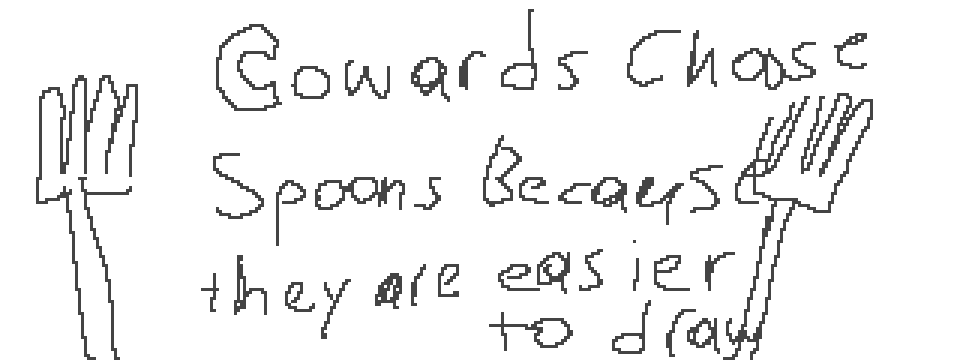 Cowards Chose
Spoons Because
they are easier
to draw